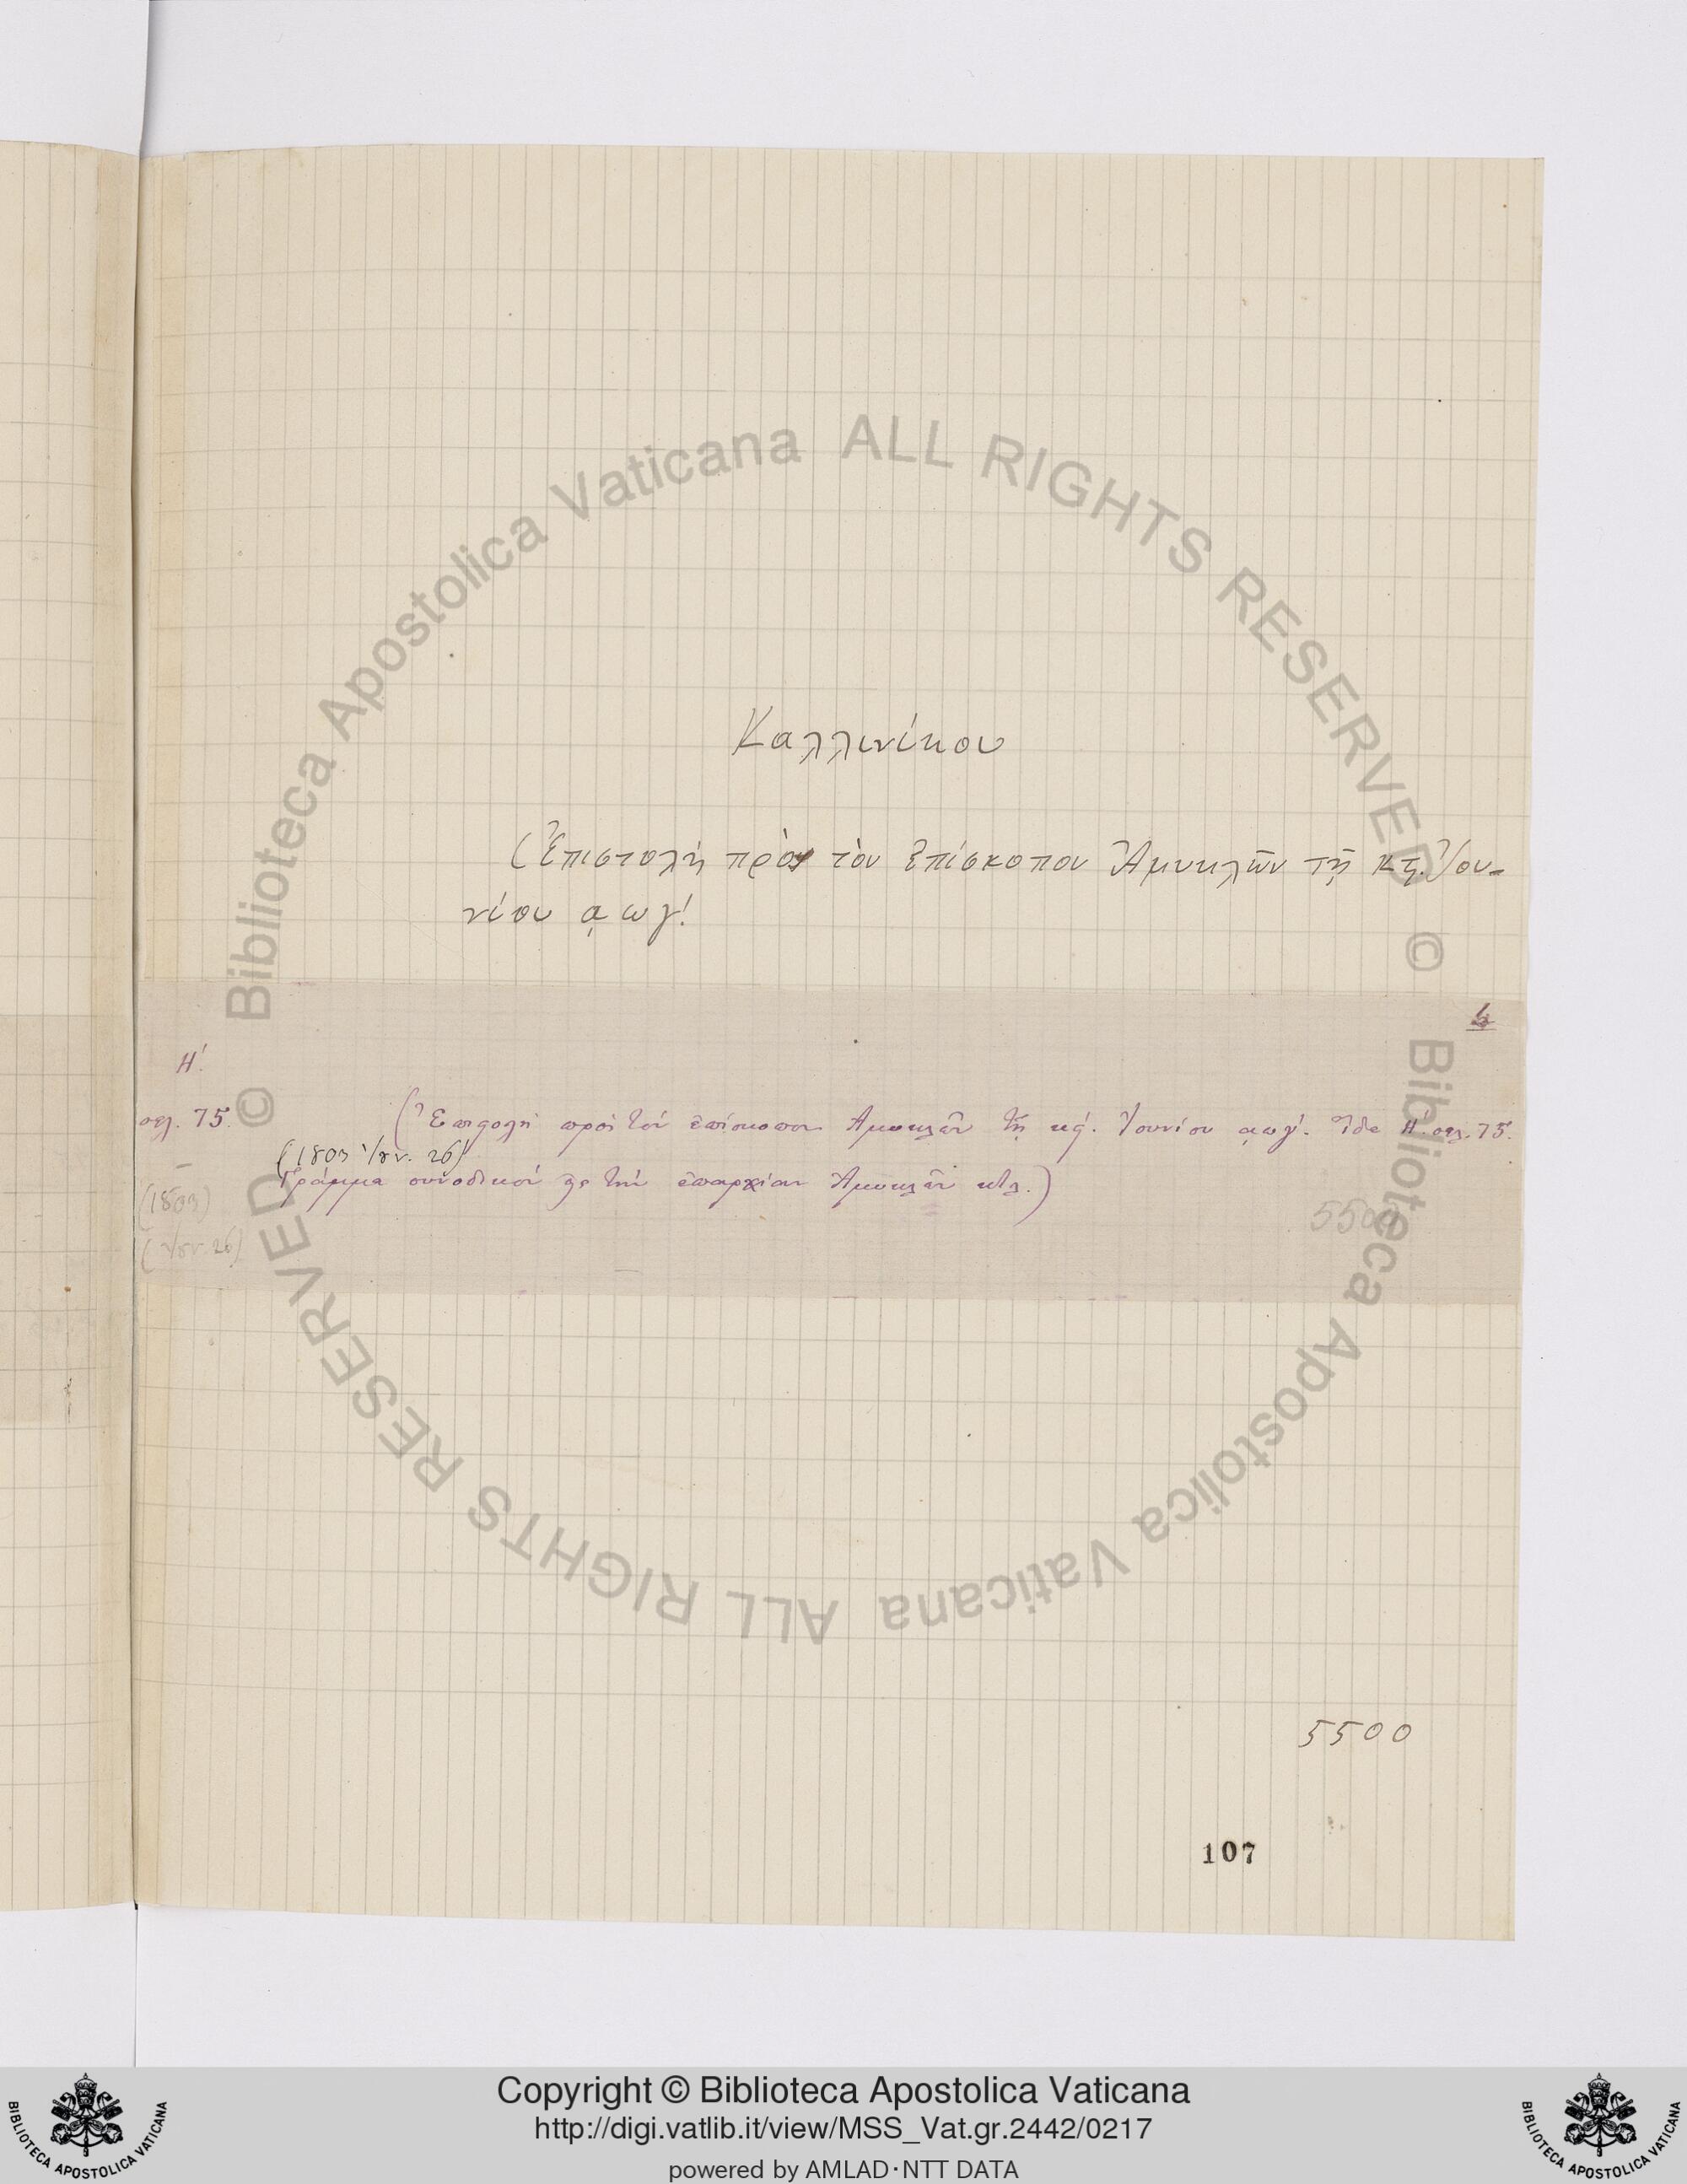 Καλλινίκου
(Ἐπιστολὴ πρὸς τὸν Ἐπίσκοπον Ἀμυκλῶν τῇ κϛ. Ἰου-
νίου ͵αωγ!
Η!
σελ. 75. (Ἐπιϛολὴ πρὸς τὸν ἐπίσκοπον Ἀμυκλῶν τῇ κϛ. Ἰουνίου ͵αωγ. Ἴδε Η! σελ. 75.
(1803 Ἰȣν. 26)
Γράμμα συνοδικὸν τὴν ἐπαρχίαν Ἀμυκλῶν κτλ.)
(1803)
(Ἰȣν. 26)
5500
5500
107
Biblioteca Apostolica Vaticana ALL RIGHTS RESERVED ©
Biblioteca Apostolica Vaticana ALL RIGHTS RESERVED ©
Copyright © Biblioteca Apostolica Vaticana
http://digi.vatlib.it/view/MSS_Vat.gr.2442/0217
powered by AMLAD·NTT DATA
BIBLIOTECA APOSTOLICA VATICANA
BIBLIOTECA APOSTOLICA VATICANA